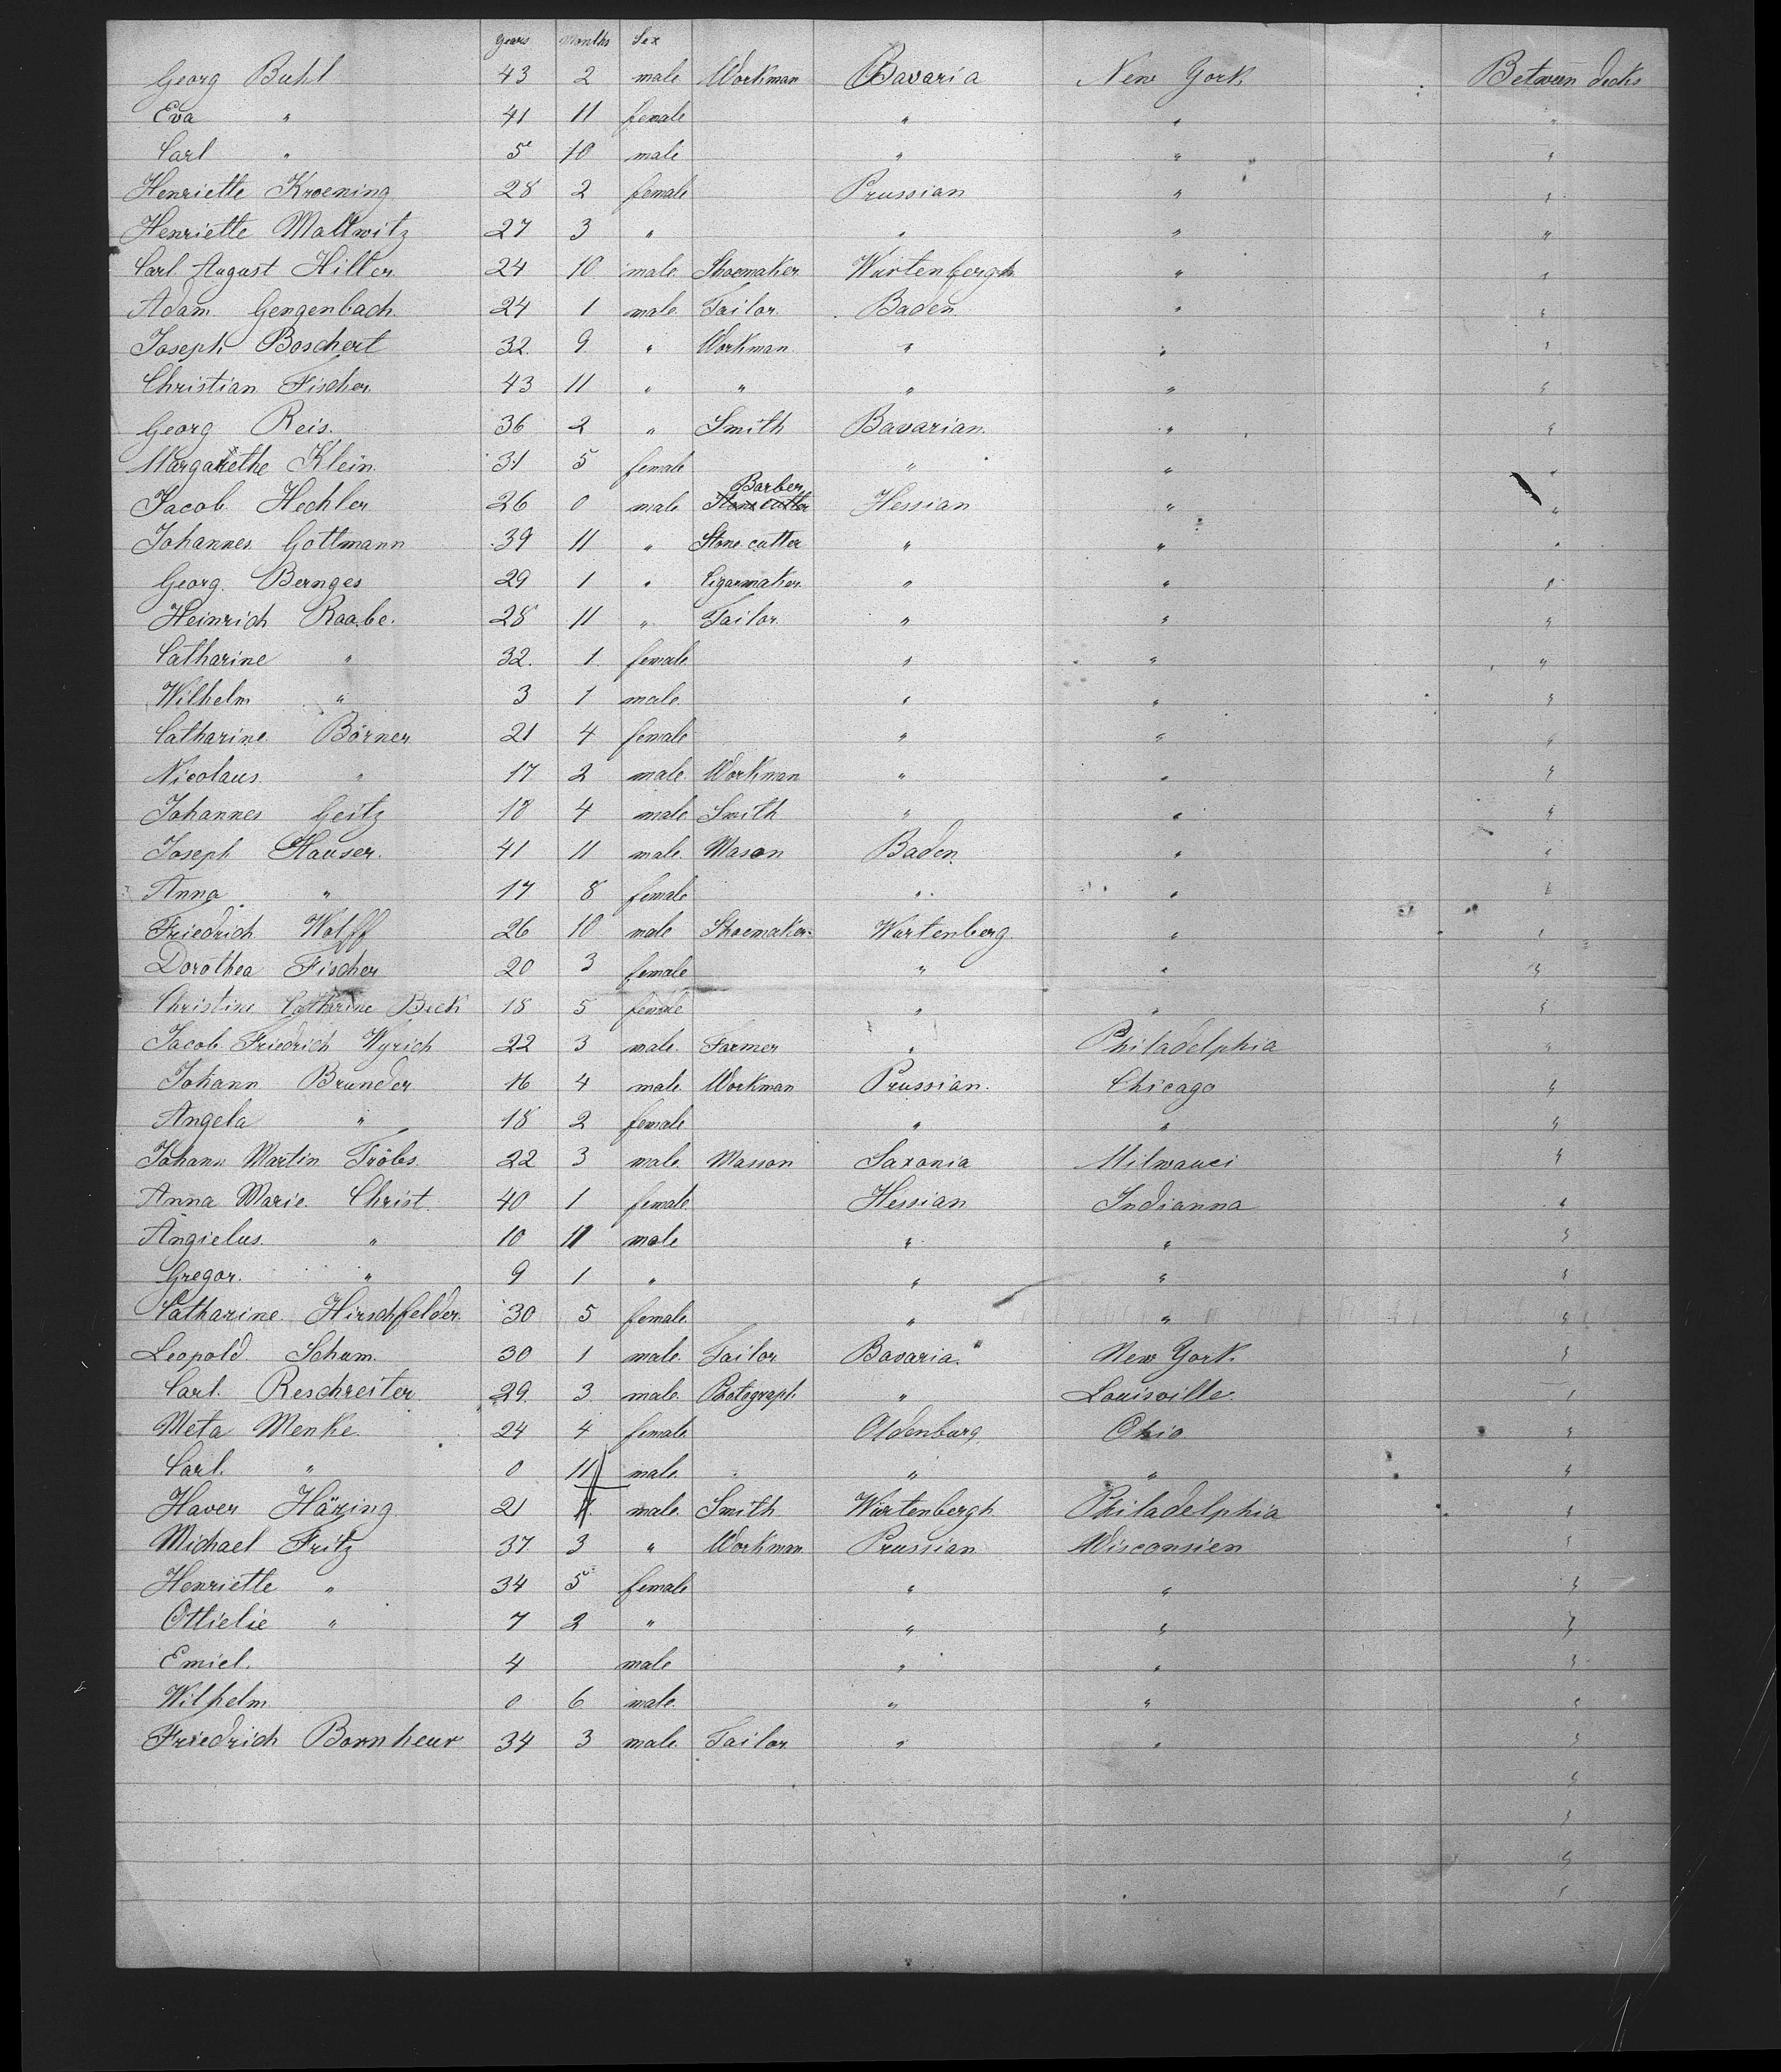 Years Months Sex
Georg Buhl 43 2 male Workman Bavaria New York Between decks
Eva " 41 11 female " " "
Carl " 5 10 male " " "
Henriette Kroening 28 2 female Prussian " "
Henriette Mallwitz 27 3 " " " "
Carl August Hiller 24 10 male Shoemaker Wurtenbergh " "
Adam Gengenbach 24 1 male Tailor Baden " "
Joseph Boschert 32 9 " Workman " " "
Christian Fischer 43 11 " " " " "
Georg Reis. 36 2 " Smith Bavarian " "
Margarethe Klein 31 5 female " " "
Barber
Jacob Hechler 26 0 male Stone cutter Hessian " "
Johannes Gottmann 39 11 " Stone cutter " " "
Georg Bernges 29 1 " Cigarmaker " " "
Heinrich Raabe. 28 11 " Tailor " " "
Catharine " 32. 1 female " " "
Wilhelm " 3 1 male " " "
Catharine Börner 21 4 female " " "
Nicolaus " 17 2 male Workman " " "
Johannes Geitz 18 4 male Smith " " "
Joseph Hauser. 41 11 male Mason Baden " "
Anna " 17 8 female " " "
Friedrich Wolff 26 10 male Shoemaker Wurtenberg " "
Dorothea Fischer 20 3 female " " "
Christine Catharine Beck 18 5 female " " "
Jacob Friedrich Wyrich 22 3 male Farmer " Philadelphia "
Johann Brunder 16 4 male Workman Prussian. Chicago "
Angela " 18 2 female " " "
Johann Martin Tröbs 22 3 male Masson Saxonia Milwauci "
Anna Marie Christ. 40 1 female Hessian Indianna "
Angielus " 10 11 male " " "
Gregor. " 9 1 " " " "
Catharine Hirschfelder 30 5 female " " "
Leopold Schum 30 1 male Tailor Bavaria. New York. "
Carl. Reschreiter 29 3 male Photograph " Louisville "
Meta Menke 24 4 female Oldenburg Ohio "
Carl. " 0 11 male " " "
Haver Häring 21 male Smith Würtenbergh Philadelphia "
Michael Fritz 37 3 " Workman Prussian Wisconsien "
Henriette " 34 5 female " " "
Ottielie " 7 2 " " " "
Emiel. 4 male " " "
Wilhelm 0 6 male " " "
Friedrich Bornheur 34 3 male Tailor " " "
"
"
"
"